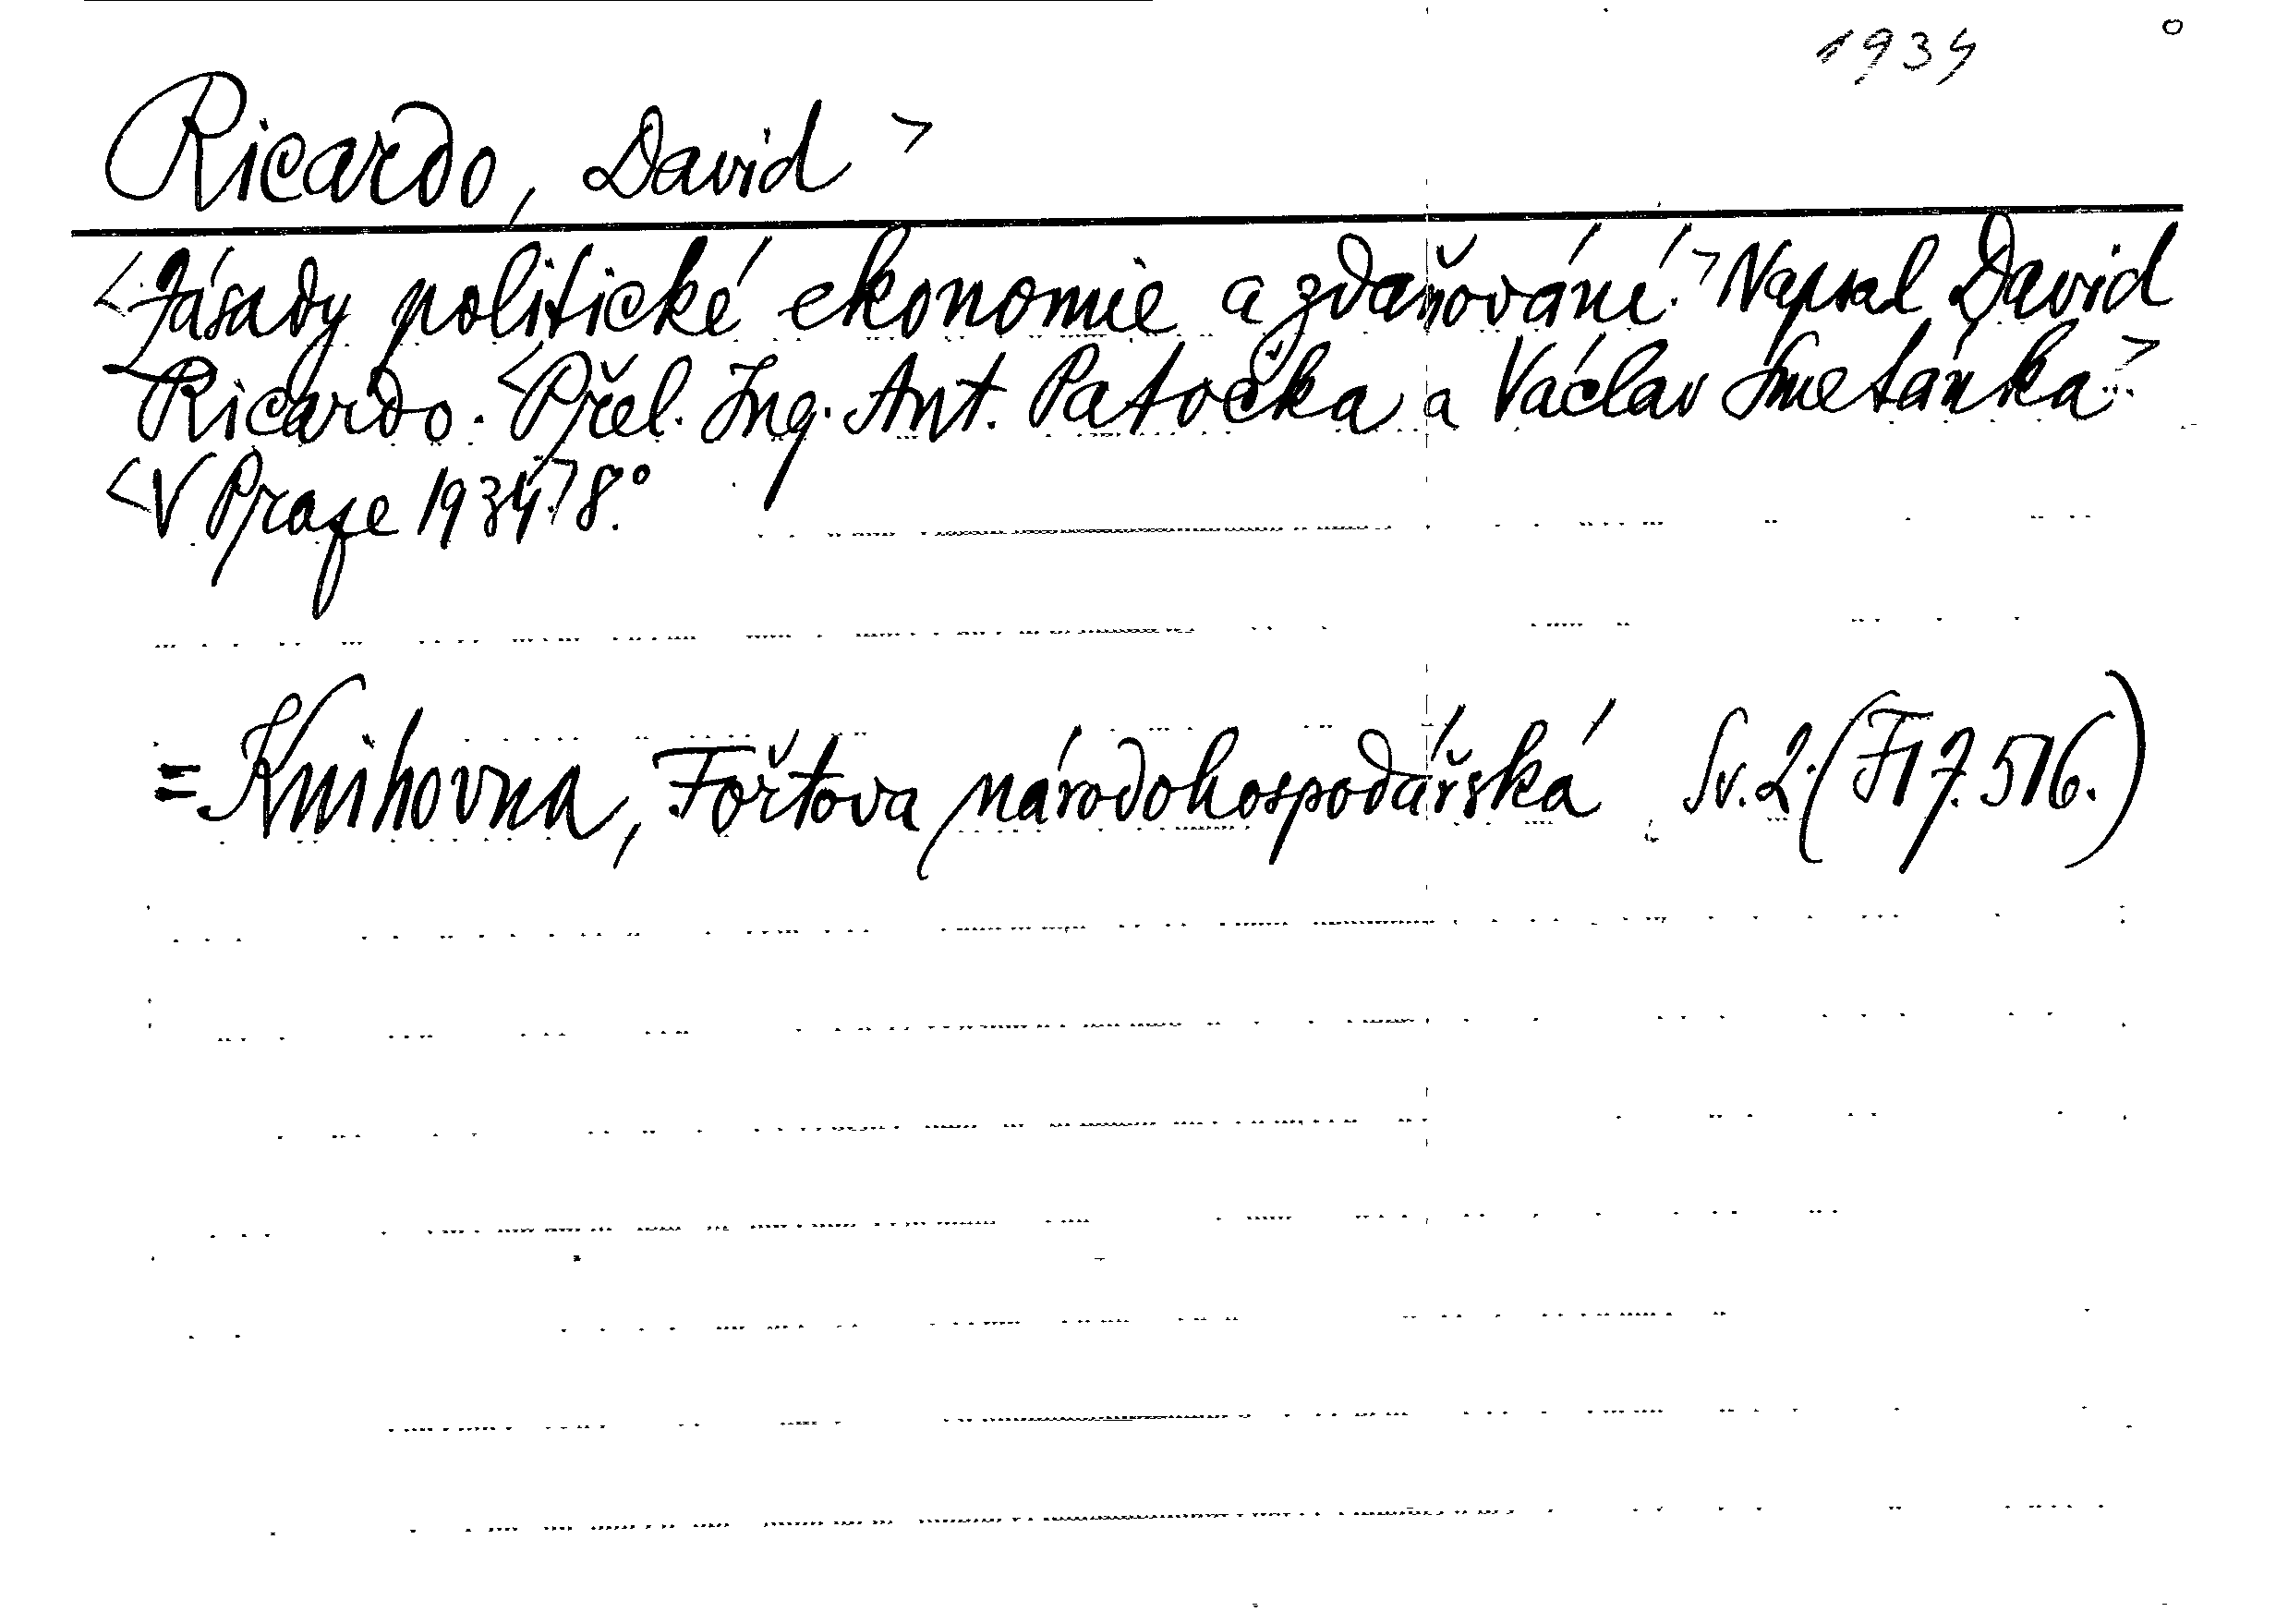 1934
Ricardo, David >
<Zásady politické ekonomie a zdaňování.> Napsal David
Ricardo. <Přel. Ing. Ant. Patočka a Václav Smetánka.>
<V Praze 1934.> 8.°
= Knihovna, Fořtova národohospodářská Sv. 2. (F 17.516.)